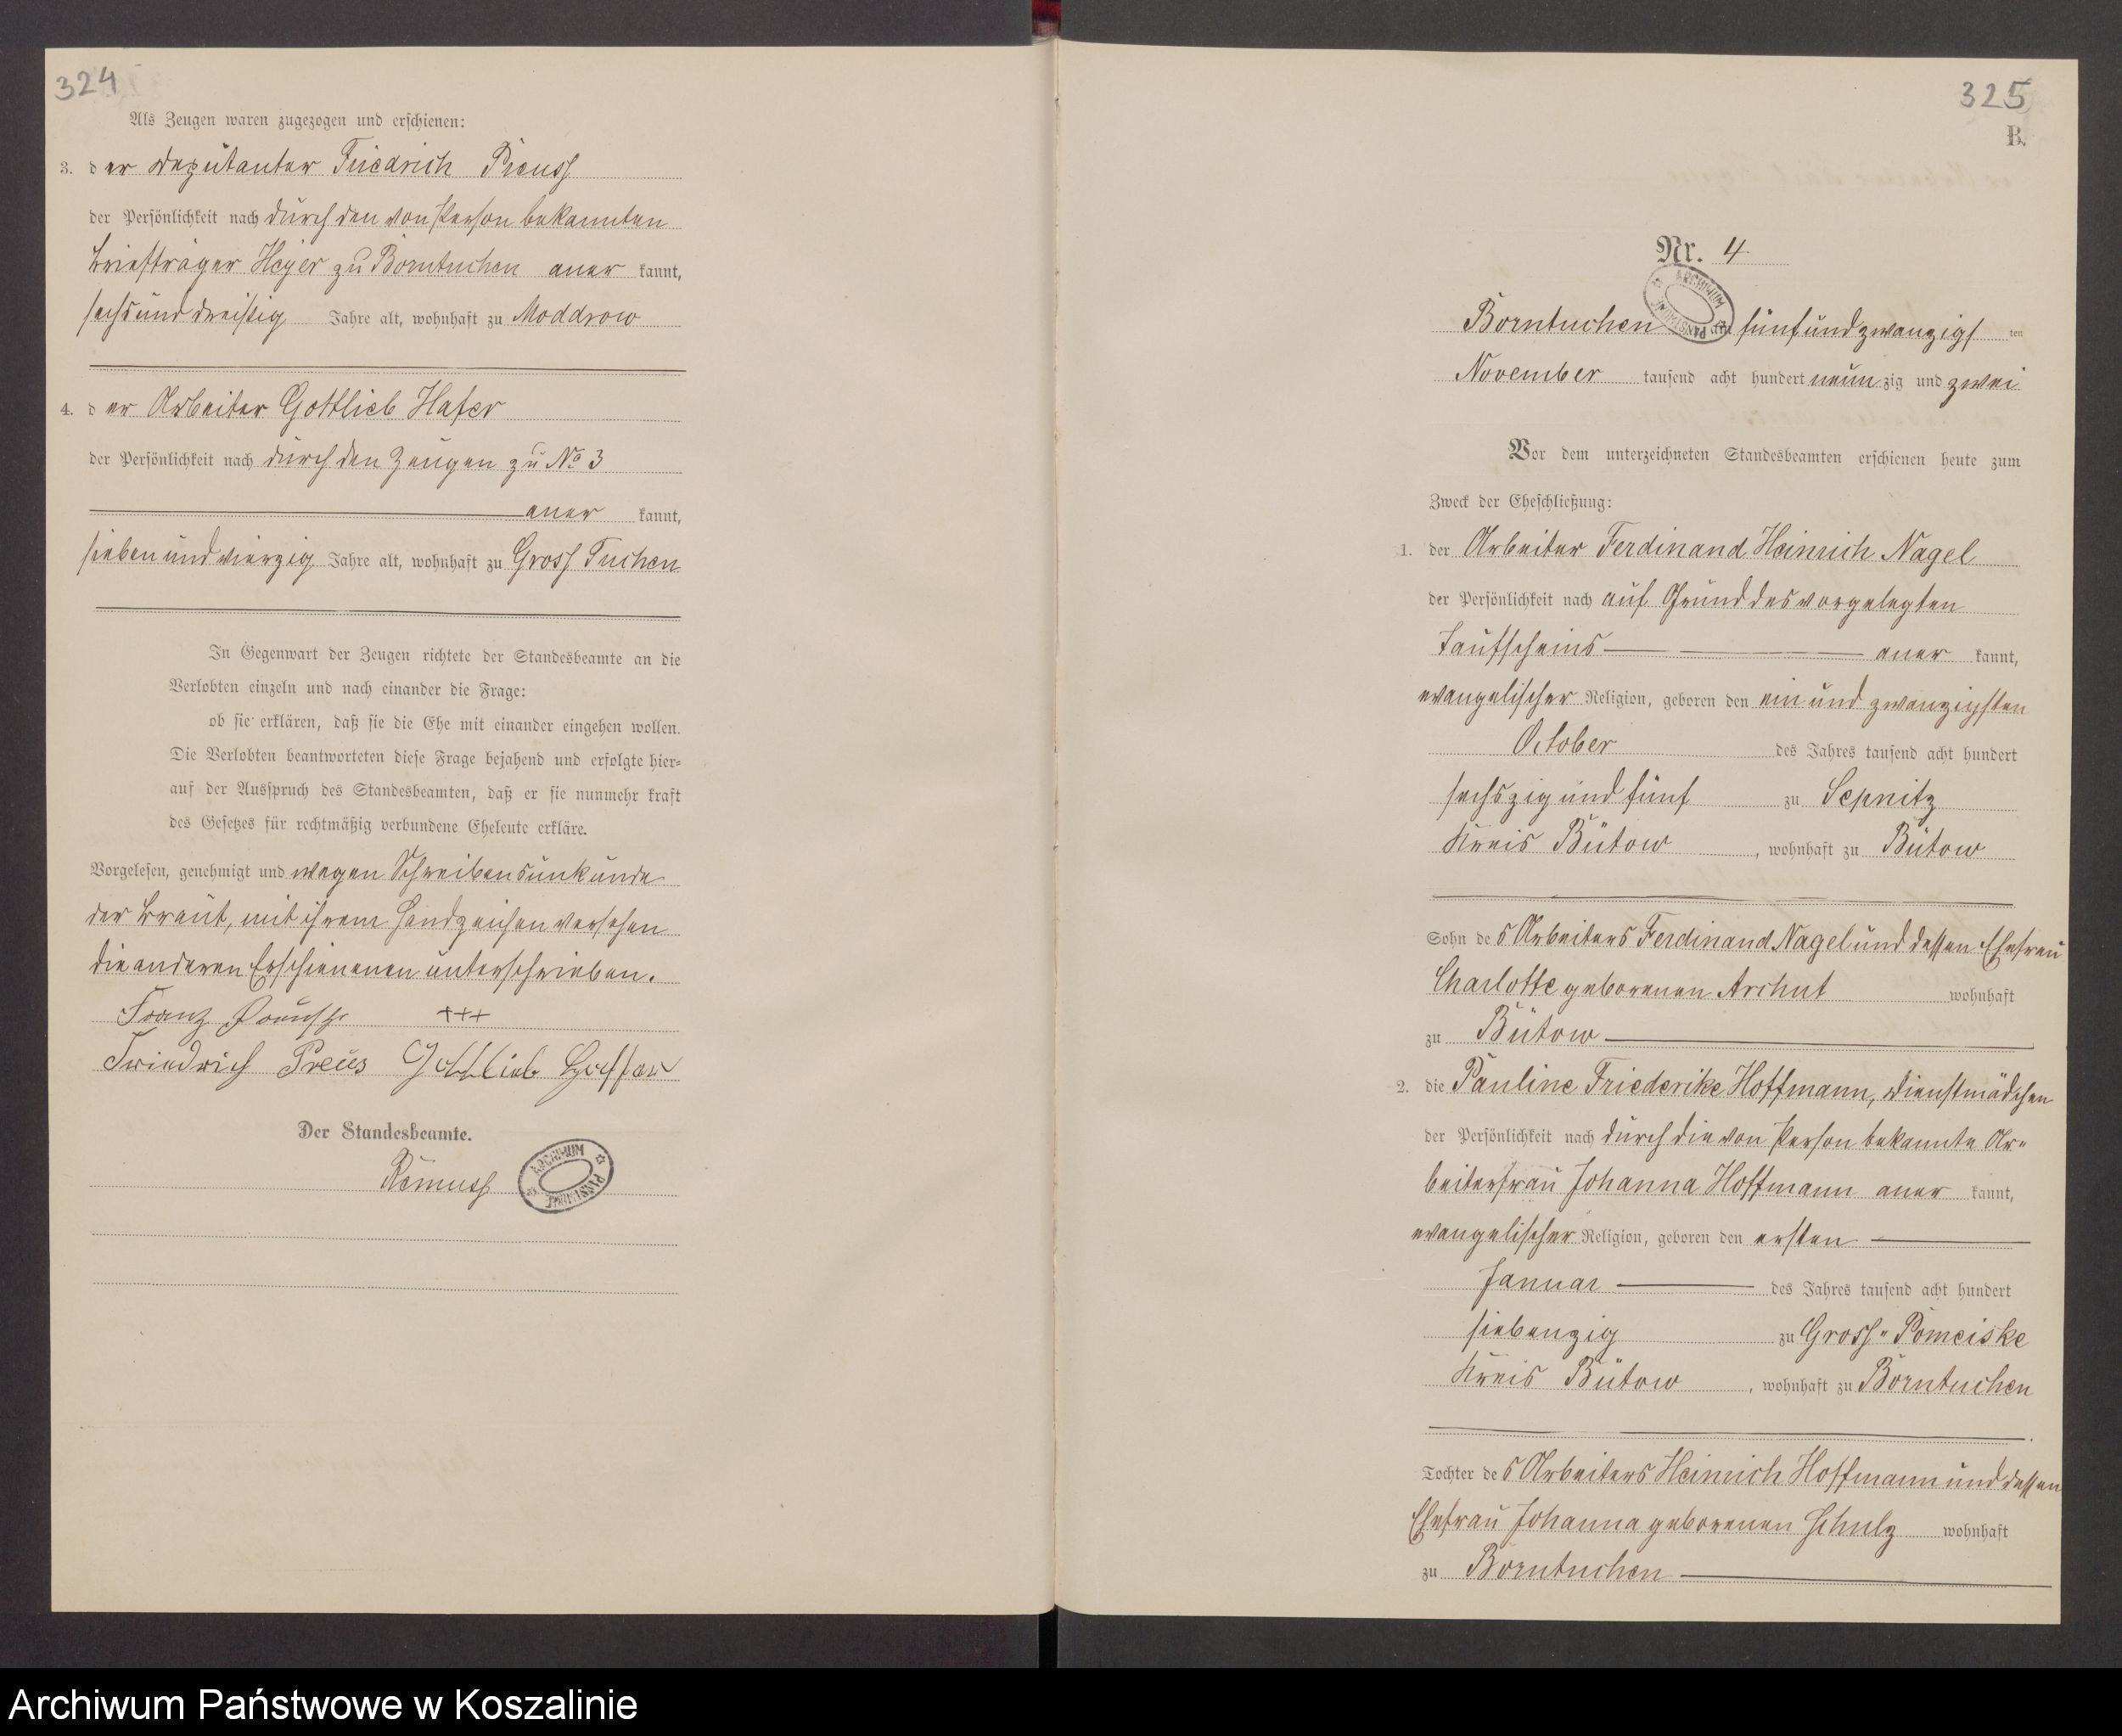 324
Als Zeugen waren zugezogen und erschienen:
3. der Deputanter Friedrich Preuss
der Persönlichkeit nach durch den von Person bekannten
Briefträger Heyer zu Borntuchen anerkannt,
sechsunddreißig Jahre alt, wohnhaft zu Moddrow
4. der Arbeiter Gottlieb Hafer
der Persönlichkeit nach durch den Zeugen zu No 3
anerkannt,
siebenundvierzig Jahre alt, wohnhaft zu Gross Tuchen
In Gegenwart der Zeugen richtete der Standesbeamte an die
Verlobten einzeln und nach einander die Frage:
ob sie erklären, daß sie die Ehe mit einander eingehen wollen.
Die Verlobten beantworteten diese Frage bejahend und erfolgte hier=
auf der Ausspruch des Standesbeamten, daß er sie nunmehr kraft
des Gesetzes für rechtmäßig verbundene Eheleute erkläre.
Vorgelesen, genehmigt und wegen Schreibensunkunde
der Braut, mit ihrem Handzeichen versehen
die anderen Erschienenen unterschrieben.
Franz +++
Friedrich Preus Gottlieb Haffer
Der Standesbeamte.
Remuss
ARCHIWUM PAŃSTWOWE
325
B.
Nr. 4
ARCHIWUM PAŃSTWOWE
Borntuchen am fünfundzwanzigsten
November tausend acht hundert neunzig und zwei
Vor dem unterzeichneten Standesbeamten erschienen heute zum
Zweck der Eheschließung:
1. der Arbeiter Ferdinand Heinrich Nagel
der Persönlichkeit nach auf Grund des vorgelegten
Taufscheins anerkannt,
evangelischer Religion, geboren den ein und zwanzigsten
October des Jahres tausend acht hundert
sechszig und fünf zu Sepnitz
Kreis Bütow, wohnhaft zu Bütow
Sohn des Arbeiters Ferdinand Nagel und dessen Ehefrau
Charlotte geborenen Archut wohnhaft
zu Bütow
2. die Pauline Friederike Hoffmann, Dienstmädchen
der Persönlichkeit nach durch die von Person bekannte Ar=
beiterfrau Johanna Hoffmann anerkannt,
evangelischer Religion, geboren den ersten
Januar des Jahres tausend acht hundert
siebenzig zu Gross=Pomeiske
Kreis Bütow, wohnhaft zu Borntuchen
Tochter des Arbeiters Heinrich Hoffmann und dessen
Ehefrau Johanna geborenen Schulz wohnhaft
zu Borntuchen
Archiwum Państwowe w Koszalinie